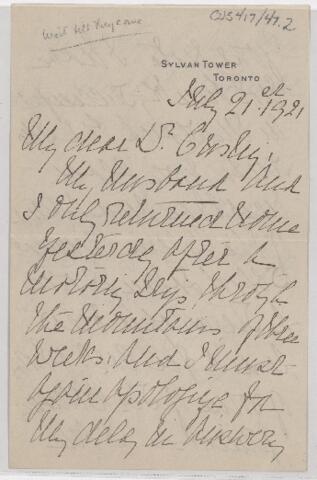 Wait till they come
CUS 417/47.2
SYLVAN TOWER
TORONTO
July 21st 1921
My dear Dr Cushing,
My husband and
I only returned home
yesterday after a
motoring trip through
the mountains of three
weeks. And I must
again apologize for
my delay in answering